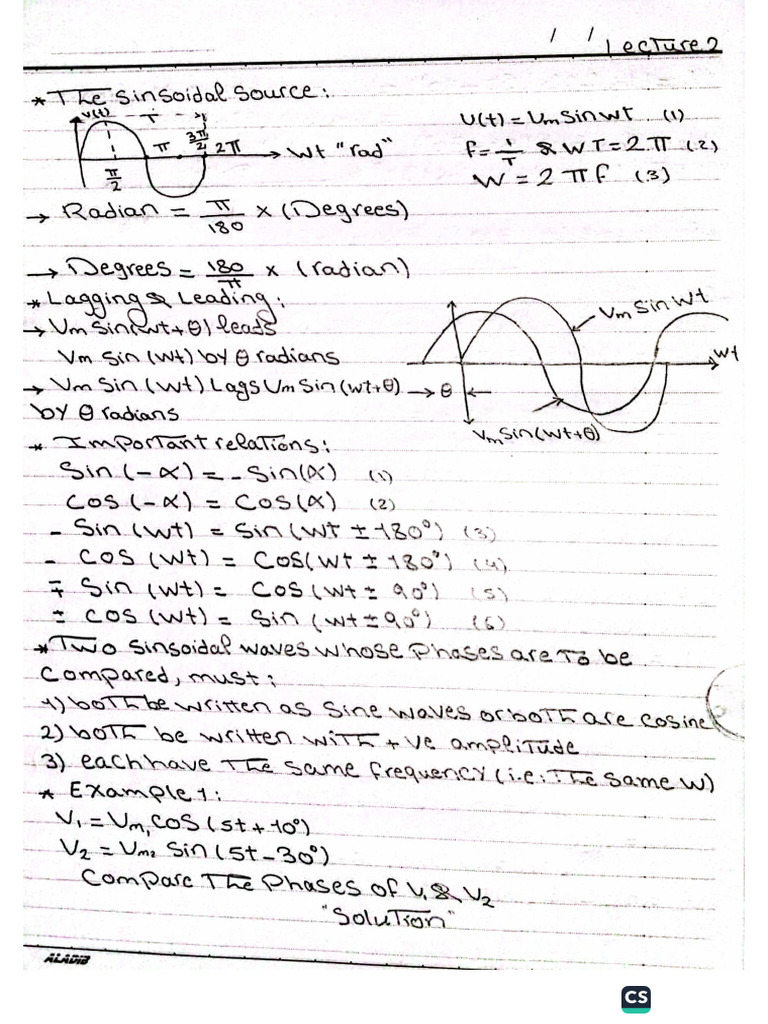 / / Lecture 2
* The sinsoidal source:
v(t) T
π/2 π 3π/2 2π → wt "rad"
v(t) = Vm sin wt (1)
f = 1/T & wT = 2π (2)
w = 2πf (3)
→ Radian = π/180 × (Degrees)
→ Degrees = 180/π × (radian)
* Lagging & Leading:
→ Vm sin(wt+θ) leads
Vm sin (wt) by θ radians
→ Vm sin (wt) Lags Vm sin (wt+θ)
by θ radians
Vm sin wt
wt
→ θ ←
Vm sin(wt+θ)
* Important relations:
Sin (-α) = - Sin(α) (1)
Cos (-α) = Cos(α) (2)
- Sin (wt) = Sin (wt ± 180°) (3)
- Cos (wt) = Cos(wt ± 180°) (4)
∓ Sin (wt) = Cos (wt ± 90°) (5)
± Cos (wt) = Sin (wt ± 90°) (6)
* Two sinsoidal waves whose phases are to be
compared, must:
1) both be written as sine waves or both are cosine
2) both be written with + ve amplitude
3) each have the same frequency (i.e: the same w)
* Example 1:
V1 = Vm1 cos (5t + 10°)
V2 = Vm2 sin (5t - 30°)
Compare the phases of V1 & V2
"Solution"
ALADIB
CS